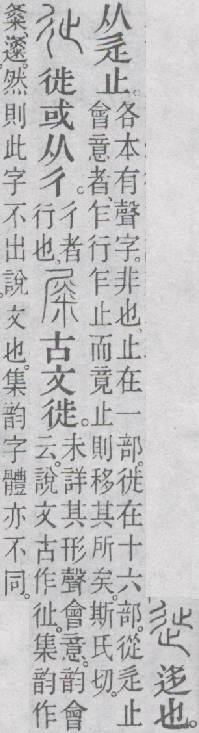 迻也。
从辵止。
各本有聲字。非也。止在一部。徙在十六部。從辵止
會意者、乍行乍止而竟止則移其所矣。斯氏切。
徙或从彳。
彳者
行也、
古文徙。
未詳其形聲會意。韵會
云。說文古作𢓊。集韵作
然則此字不出說文也。集韵字體亦不同。